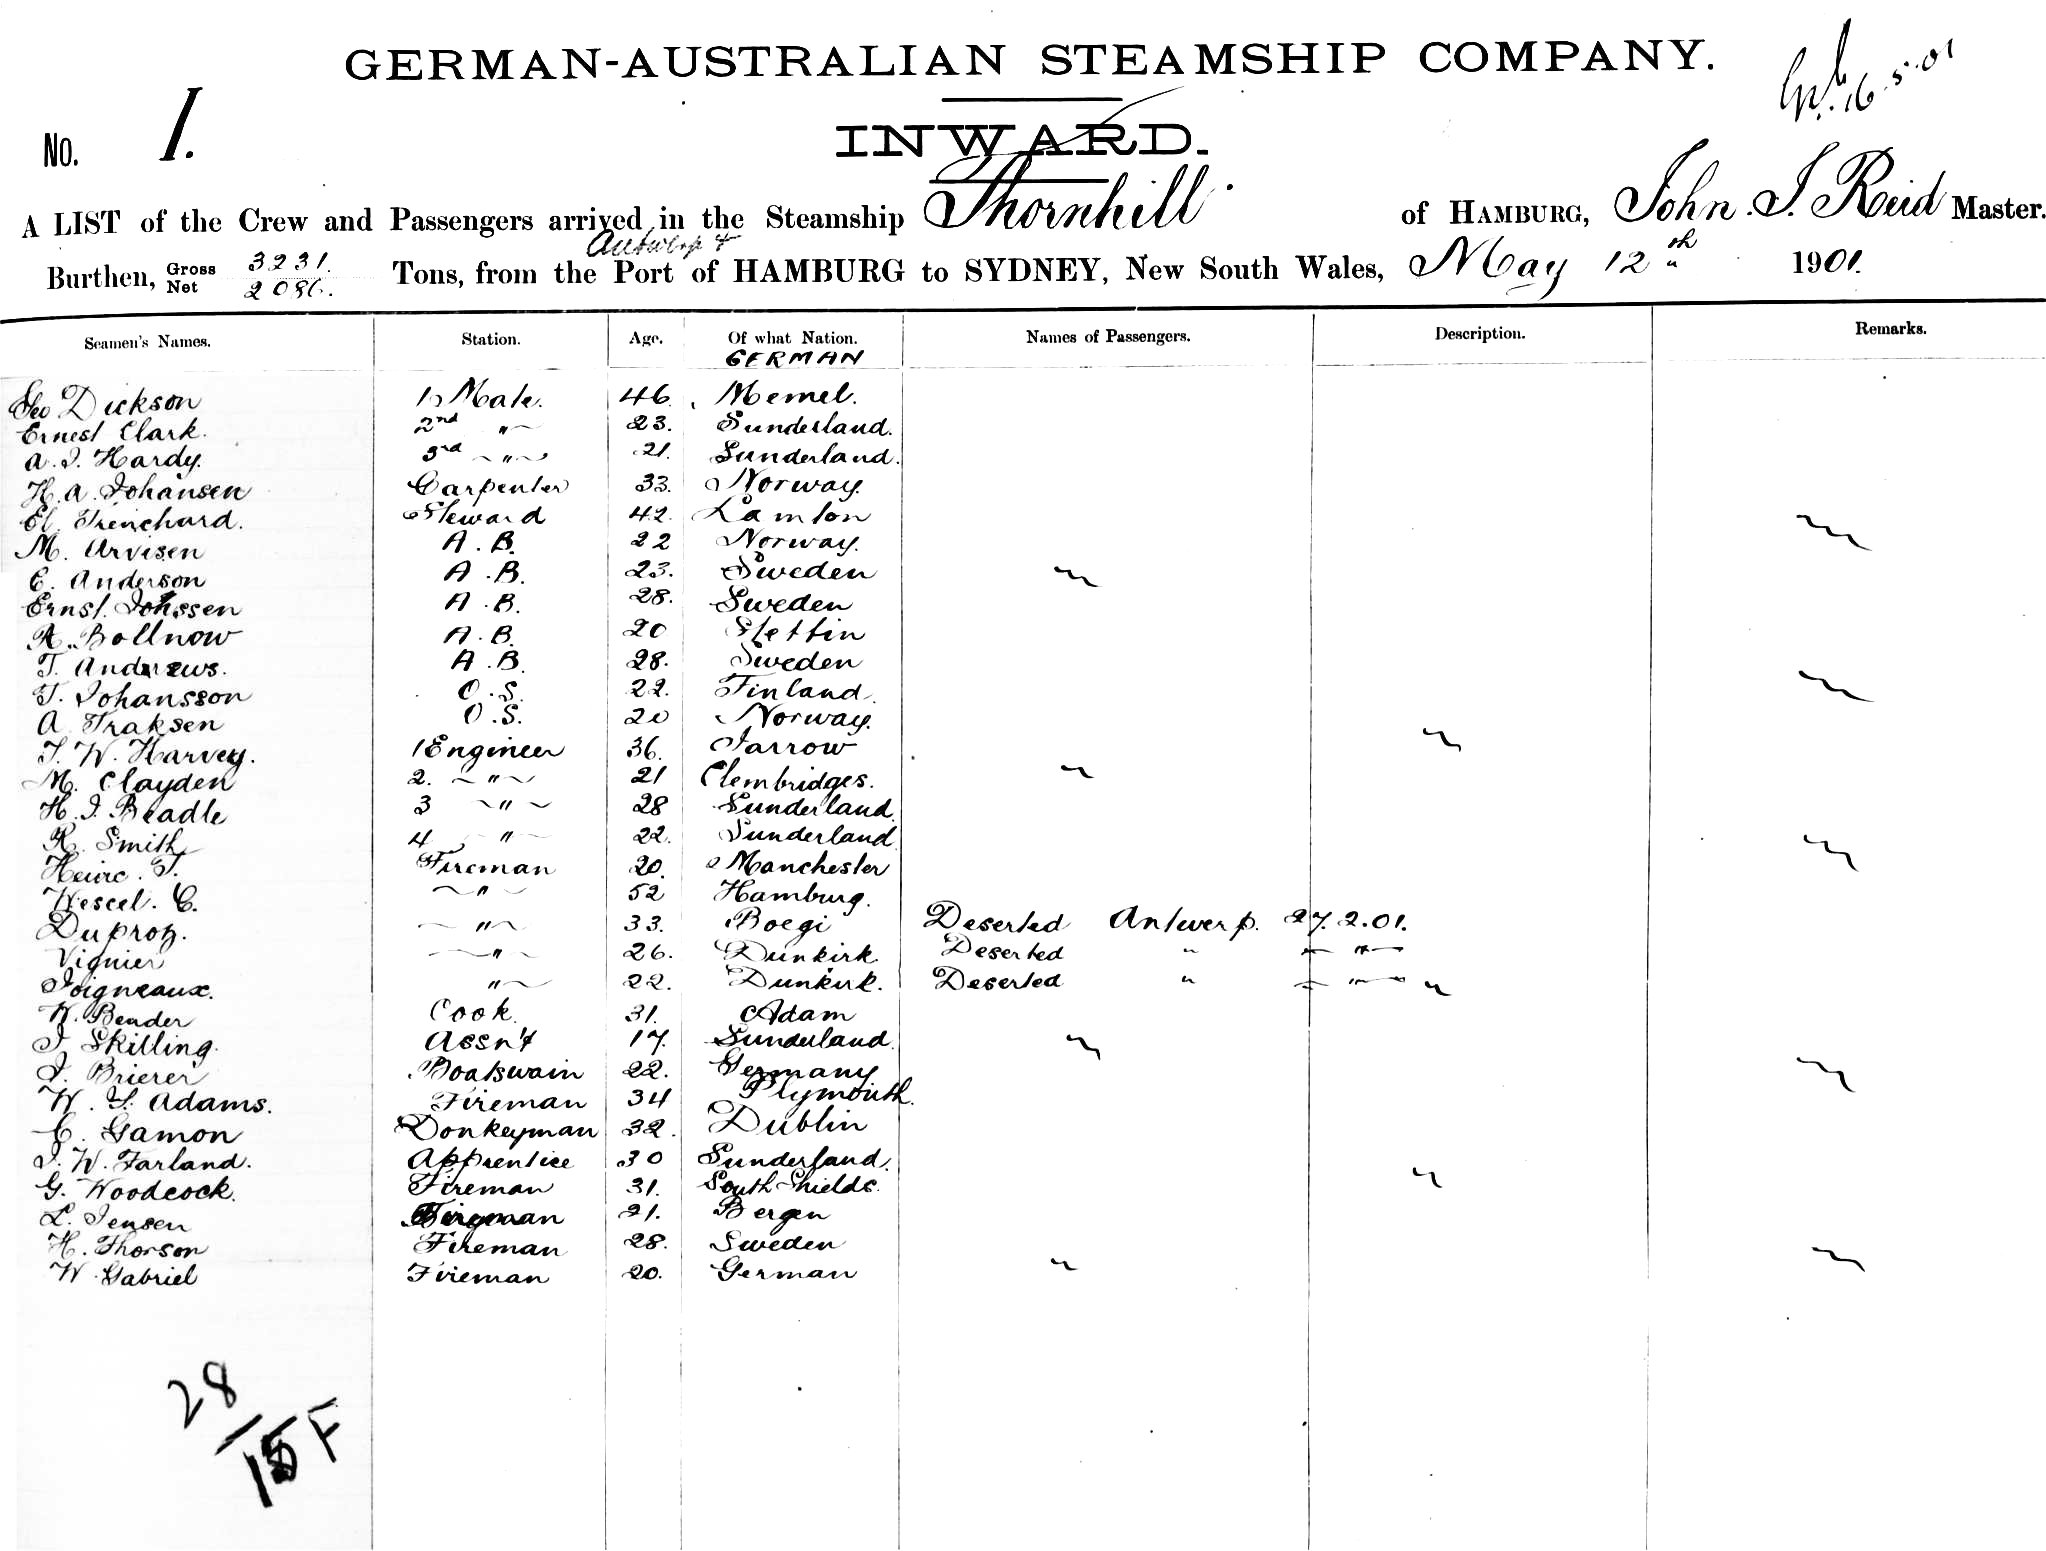 GERMAN-AUSTRALIAN STEAMSHIP COMPANY.
16.5.01
No. 1.
INWARD.
A LIST of the Crew and Passengers arrived in the Steamship Thornhill of HAMBURG, John. S. Reid Master.
Antwerp &
Burthen, Gross 3231. Net 2086. Tons, from the Port of HAMBURG to SYDNEY, New South Wales, May 12th 1901.
Seamen's Names. Station. Age. Of what Nation. Names of Passengers. Description. Remarks.
GERMAN
Geo Dickson 1) Mate. 46. Memel.
Ernest Clark. 2nd " 23. Sunderland.
A. J. Hardy. 3rd " 21. Sunderland.
H. A. Johansen Carpenter 33. Norway.
Trenchard. Steward 42. Lamton
M. Arvisen A. B. 22 Norway.
E. Anderson A. B. 23. Sweden
Ernst. A. B. 28. Sweden
A. Bollnow A. B. 20 Stettin
T. Andrews. A. B. 28. Sweden
T. Johansson O. S. 22. Finland.
A. Traksen O. S. 20 Norway.
J. W. Harvey. 1 Engineer 36. Jarrow
M. Clayden 2. " 21 Clembridges.
H. J. Beadle 3 " 28 Sunderland.
R. Smith 4 " 22. Sunderland
T. Fireman 20. Manchester
Wescel. C. " 52 Hamburg.
Duproz. " 33. Boegi Deserted Antwerp. 27.2.01.
Vignier " 26. Dunkirk. Deserted " "
Joigneaux. " 22. Dunkirk. Deserted " "
W. Bender Cook. 31. Adam
J Skilling. Assn't 17. Sunderland.
J. Brierer Boatswain 22. Germany
W. Adams. Fireman 34 Plymouth.
C. Gamon Donkeyman 32. Dublin
J. W. Farland. Apprentice 30 Sunderland.
G. Woodcock. Fireman 31. South Shields.
L. Jensen Fireman 21. Bergen
H. Thorson Fireman 28. Sweden
W. Gabriel Fireman 20. German
28
15 F